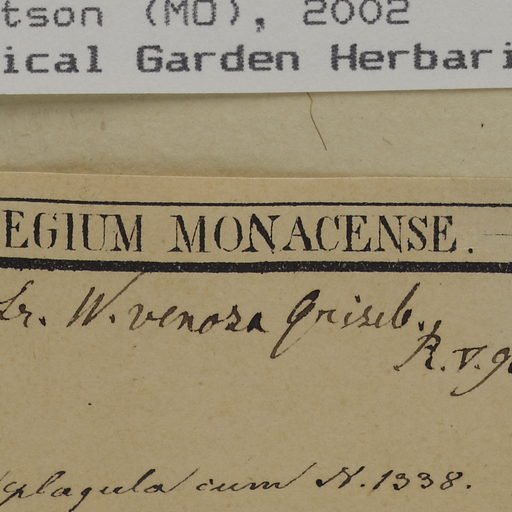 tson (MO), 2002
ical Garden Herbari
EGIUM MONACENSE.
Gr. W. venosa Griseb.,
R. v. g
plagula cum N. 1338.